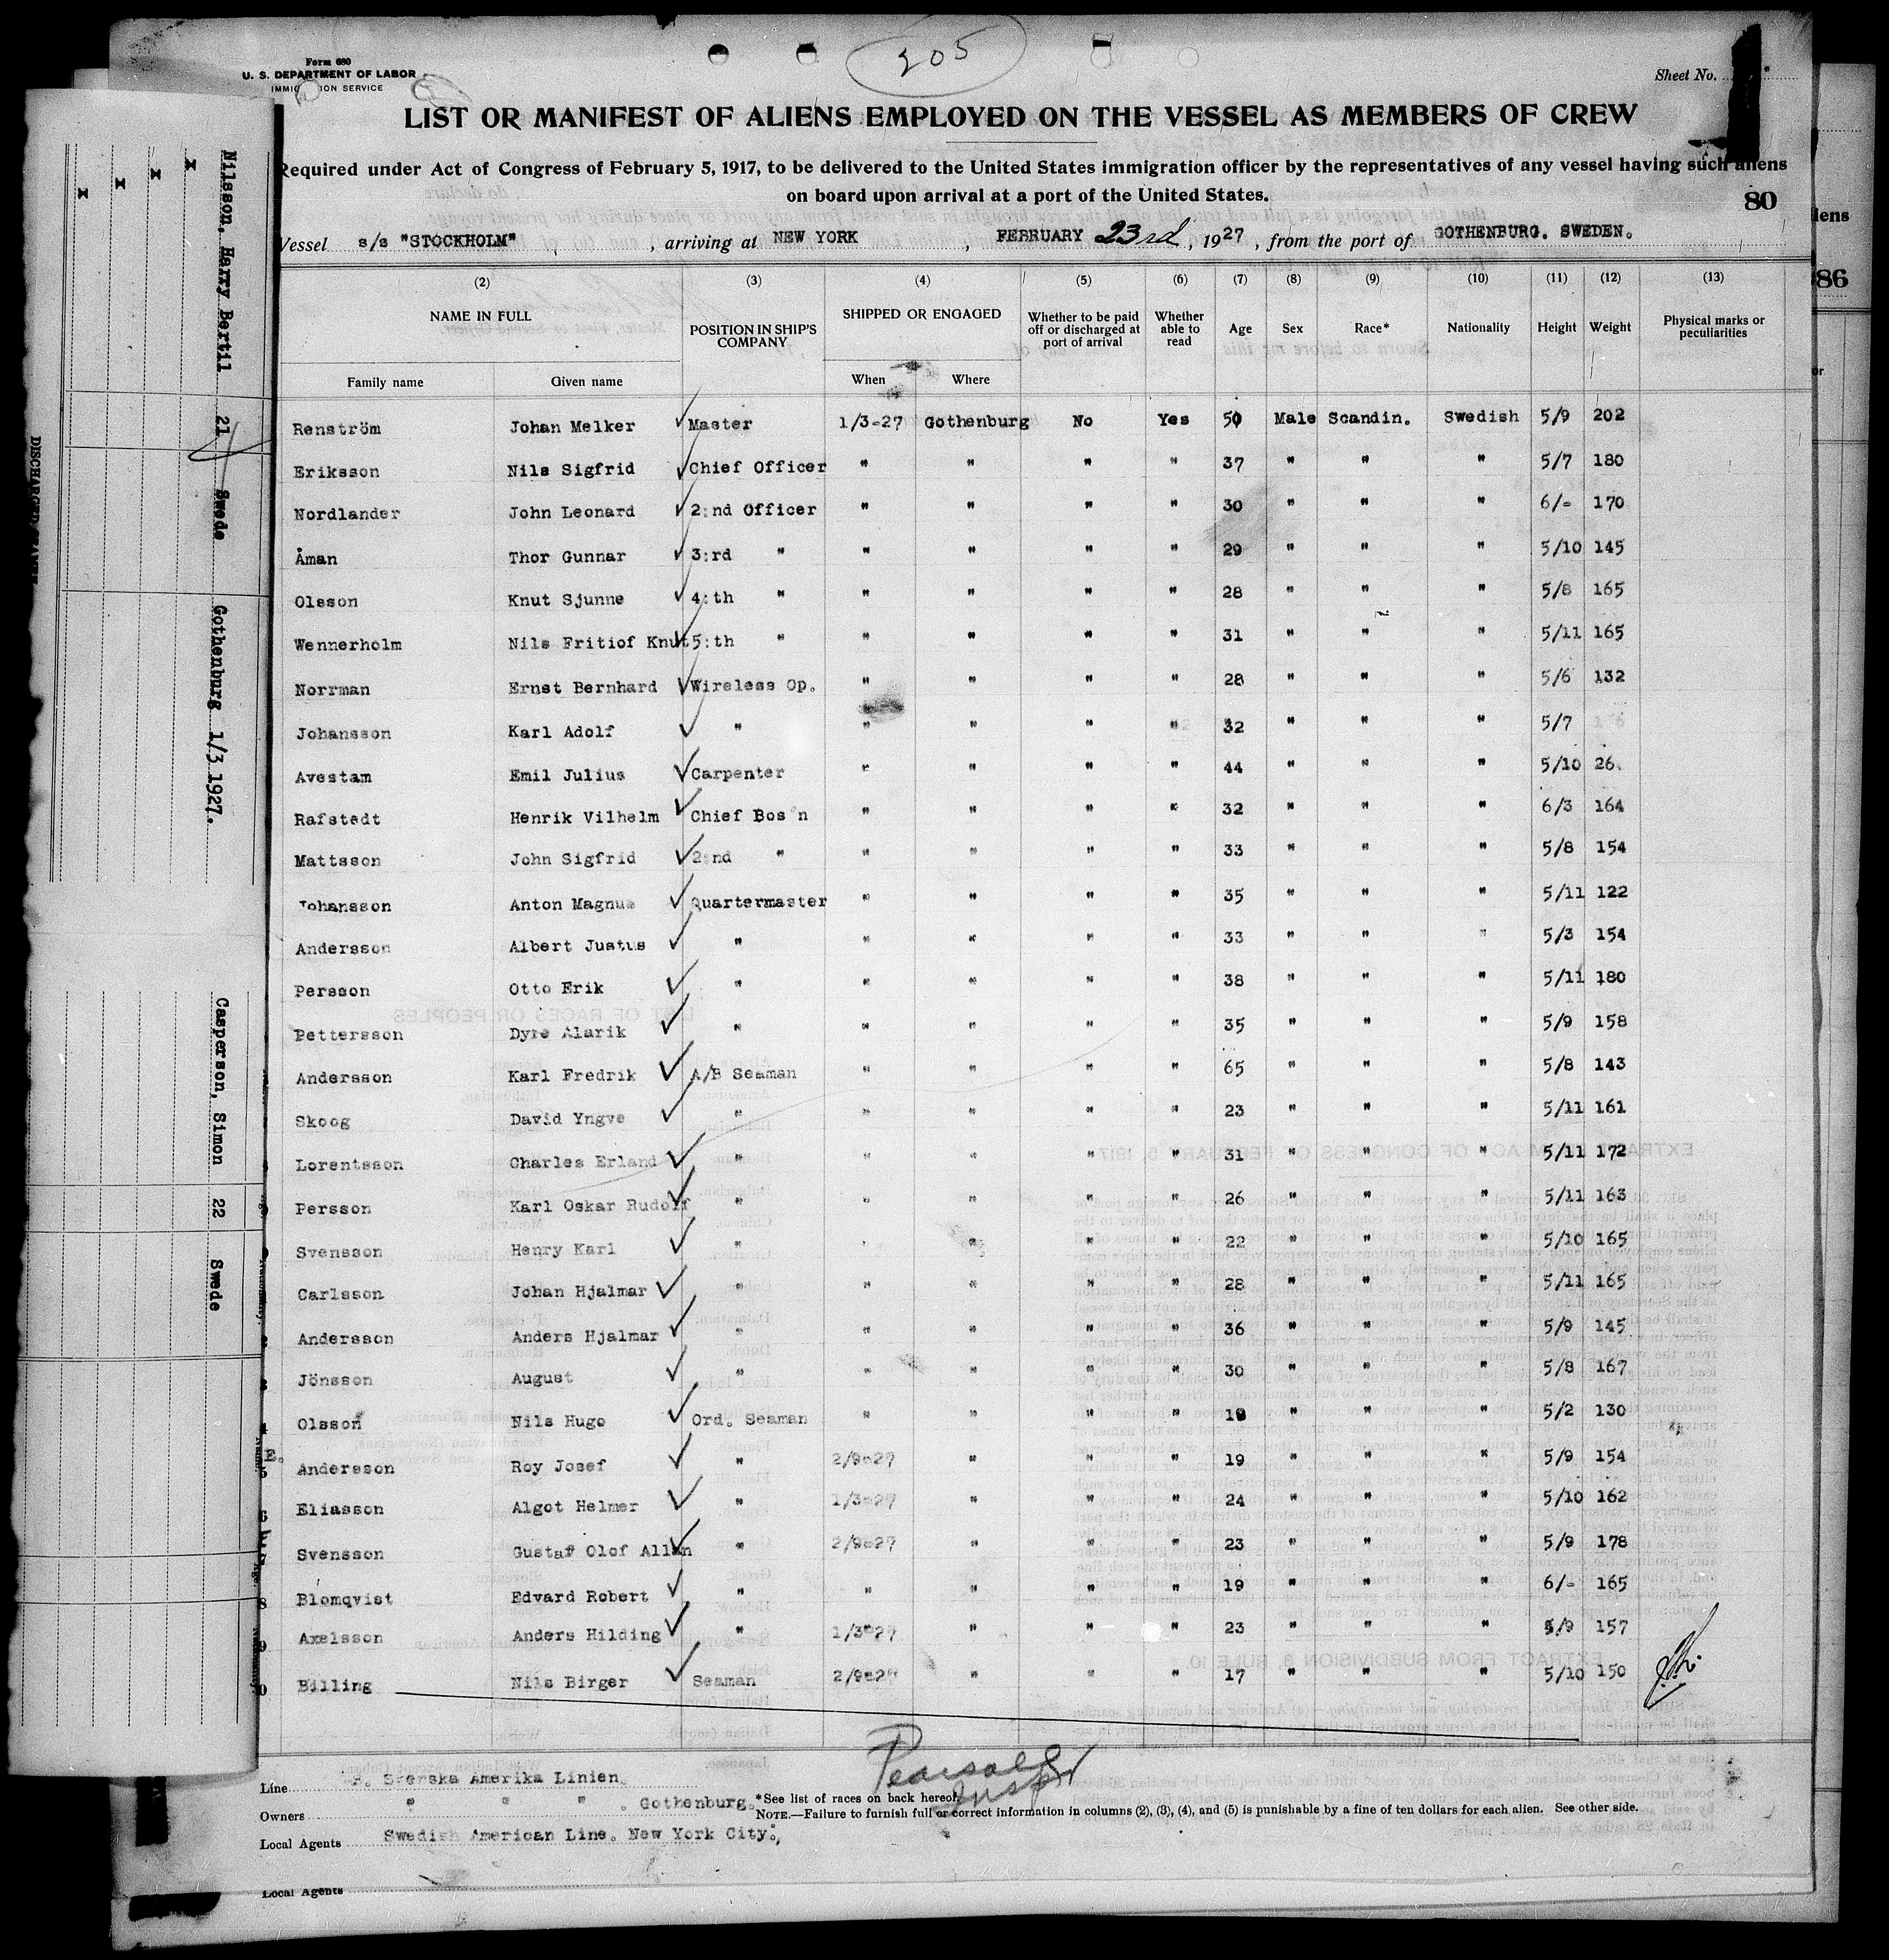 205
Form 680
U. S. DEPARTMENT OF LABOR
IMMIGRATION SERVICE
Sheet No.
LIST OR MANIFEST OF ALIENS EMPLOYED ON THE VESSEL AS MEMBERS OF CREW
Required under Act of Congress of February 5, 1917, to be delivered to the United States immigration officer by the representatives of any vessel having such aliens
on board upon arrival at a port of the United States.
80
Vessel s/s "STOCKHOLM", arriving at NEW YORK, FEBRUARY 23rd, 1927, from the port of GOTHENBURG. SWEDEN.
(2) (3) (4) (5) (6) (7) (8) (9) (10) (11) (12) (13)
NAME IN FULL POSITION IN SHIP'S COMPANY SHIPPED OR ENGAGED Whether to be paid off or discharged at port of arrival Whether able to read Age Sex Race* Nationality Height Weight Physical marks or peculiarities
Family name Given name When Where
Renström Johan Melker Master 1/3-27 Gothenburg No Yes 50 Male Scandin. Swedish 5/9 202
Eriksson Nils Sigfrid Chief Officer " " " " 37 " " " 5/7 180
Nordlander John Leonard 2:nd Officer " " " " 30 " " " 6/- 170
Åman Thor Gunnar 3:rd " " " " " 29 " " " 5/10 145
Olsson Knut Sjunne 4:th " " " " " 28 " " " 5/8 165
Wennerholm Nils Fritiof Knut 5:th " " " " " 31 " " " 5/11 165
Norrman Ernst Bernhard Wireless Op. " " " " 28 " " " 5/6 132
Johansson Karl Adolf " " " " " 32 " " " 5/7
Avestam Emil Julius Carpenter " " " " 44 " " " 5/10
Rafstedt Henrik Vilhelm Chief Bos'n " " " " 32 " " " 6/3 164
Mattsson John Sigfrid 2:nd " " " " " 33 " " " 5/8 154
Johansson Anton Magnus Quartermaster " " " " 35 " " " 5/11 122
Andersson Albert Justus " " " " " 33 " " " 5/3 154
Persson Otto Erik " " " " " 38 " " " 5/11 180
Pettersson Dyre Alarik " " " " " 35 " " " 5/9 158
Andersson Karl Fredrik A/B Seaman " " " " 65 " " " 5/8 143
Skoog David Yngve " " " " " 23 " " " 5/11 161
Lorentsson Charles Erland " " " " " 31 " " " 5/11 172
Persson Karl Oskar Rudolf " " " " " 26 " " " 5/11 163
Svensson Henry Karl " " " " " 22 " " " 5/10 165
Carlsson Johan Hjalmar " " " " " 28 " " " 5/11 165
Andersson Anders Hjalmar " " " " " 36 " " " 5/9 145
Jönsson August " " " " " 30 " " " 5/8 167
Olsson Nils Hugo Ord. Seaman " " " " 19 " " " 5/2 130
Andersson Roy Josef " 2/9-27 " " " 19 " " " 5/9 154
Eliasson Algot Helmer " 1/3-27 " " " 24 " " " 5/10 162
Svensson Gustaf Olof Allan " 2/9-27 " " " 23 " " " 5/9 178
Blomqvist Edvard Robert " " " " " 19 " " " 6/- 165
Axelsson Anders Hilding " 1/3-27 " " " 23 " " " 5/9 157
Billing Nils Birger Seaman 2/9-27 " " " 17 " " " 5/10 150
Line Svenska Amerika Linien.
Owners " " " . Gothenburg.
Local Agents Swedish American Line. New York City.,
Local Agents
*See list of races on back hereof.
NOTE.—Failure to furnish full or correct information in columns (2), (3), (4), and (5) is punishable by a fine of ten dollars for each alien. See other side.
Nilsson, Harry Bertil 21 Swede Gothenburg 1/3 1927.
x x x x
Casperson, Simon 22 Swede
aliens
86